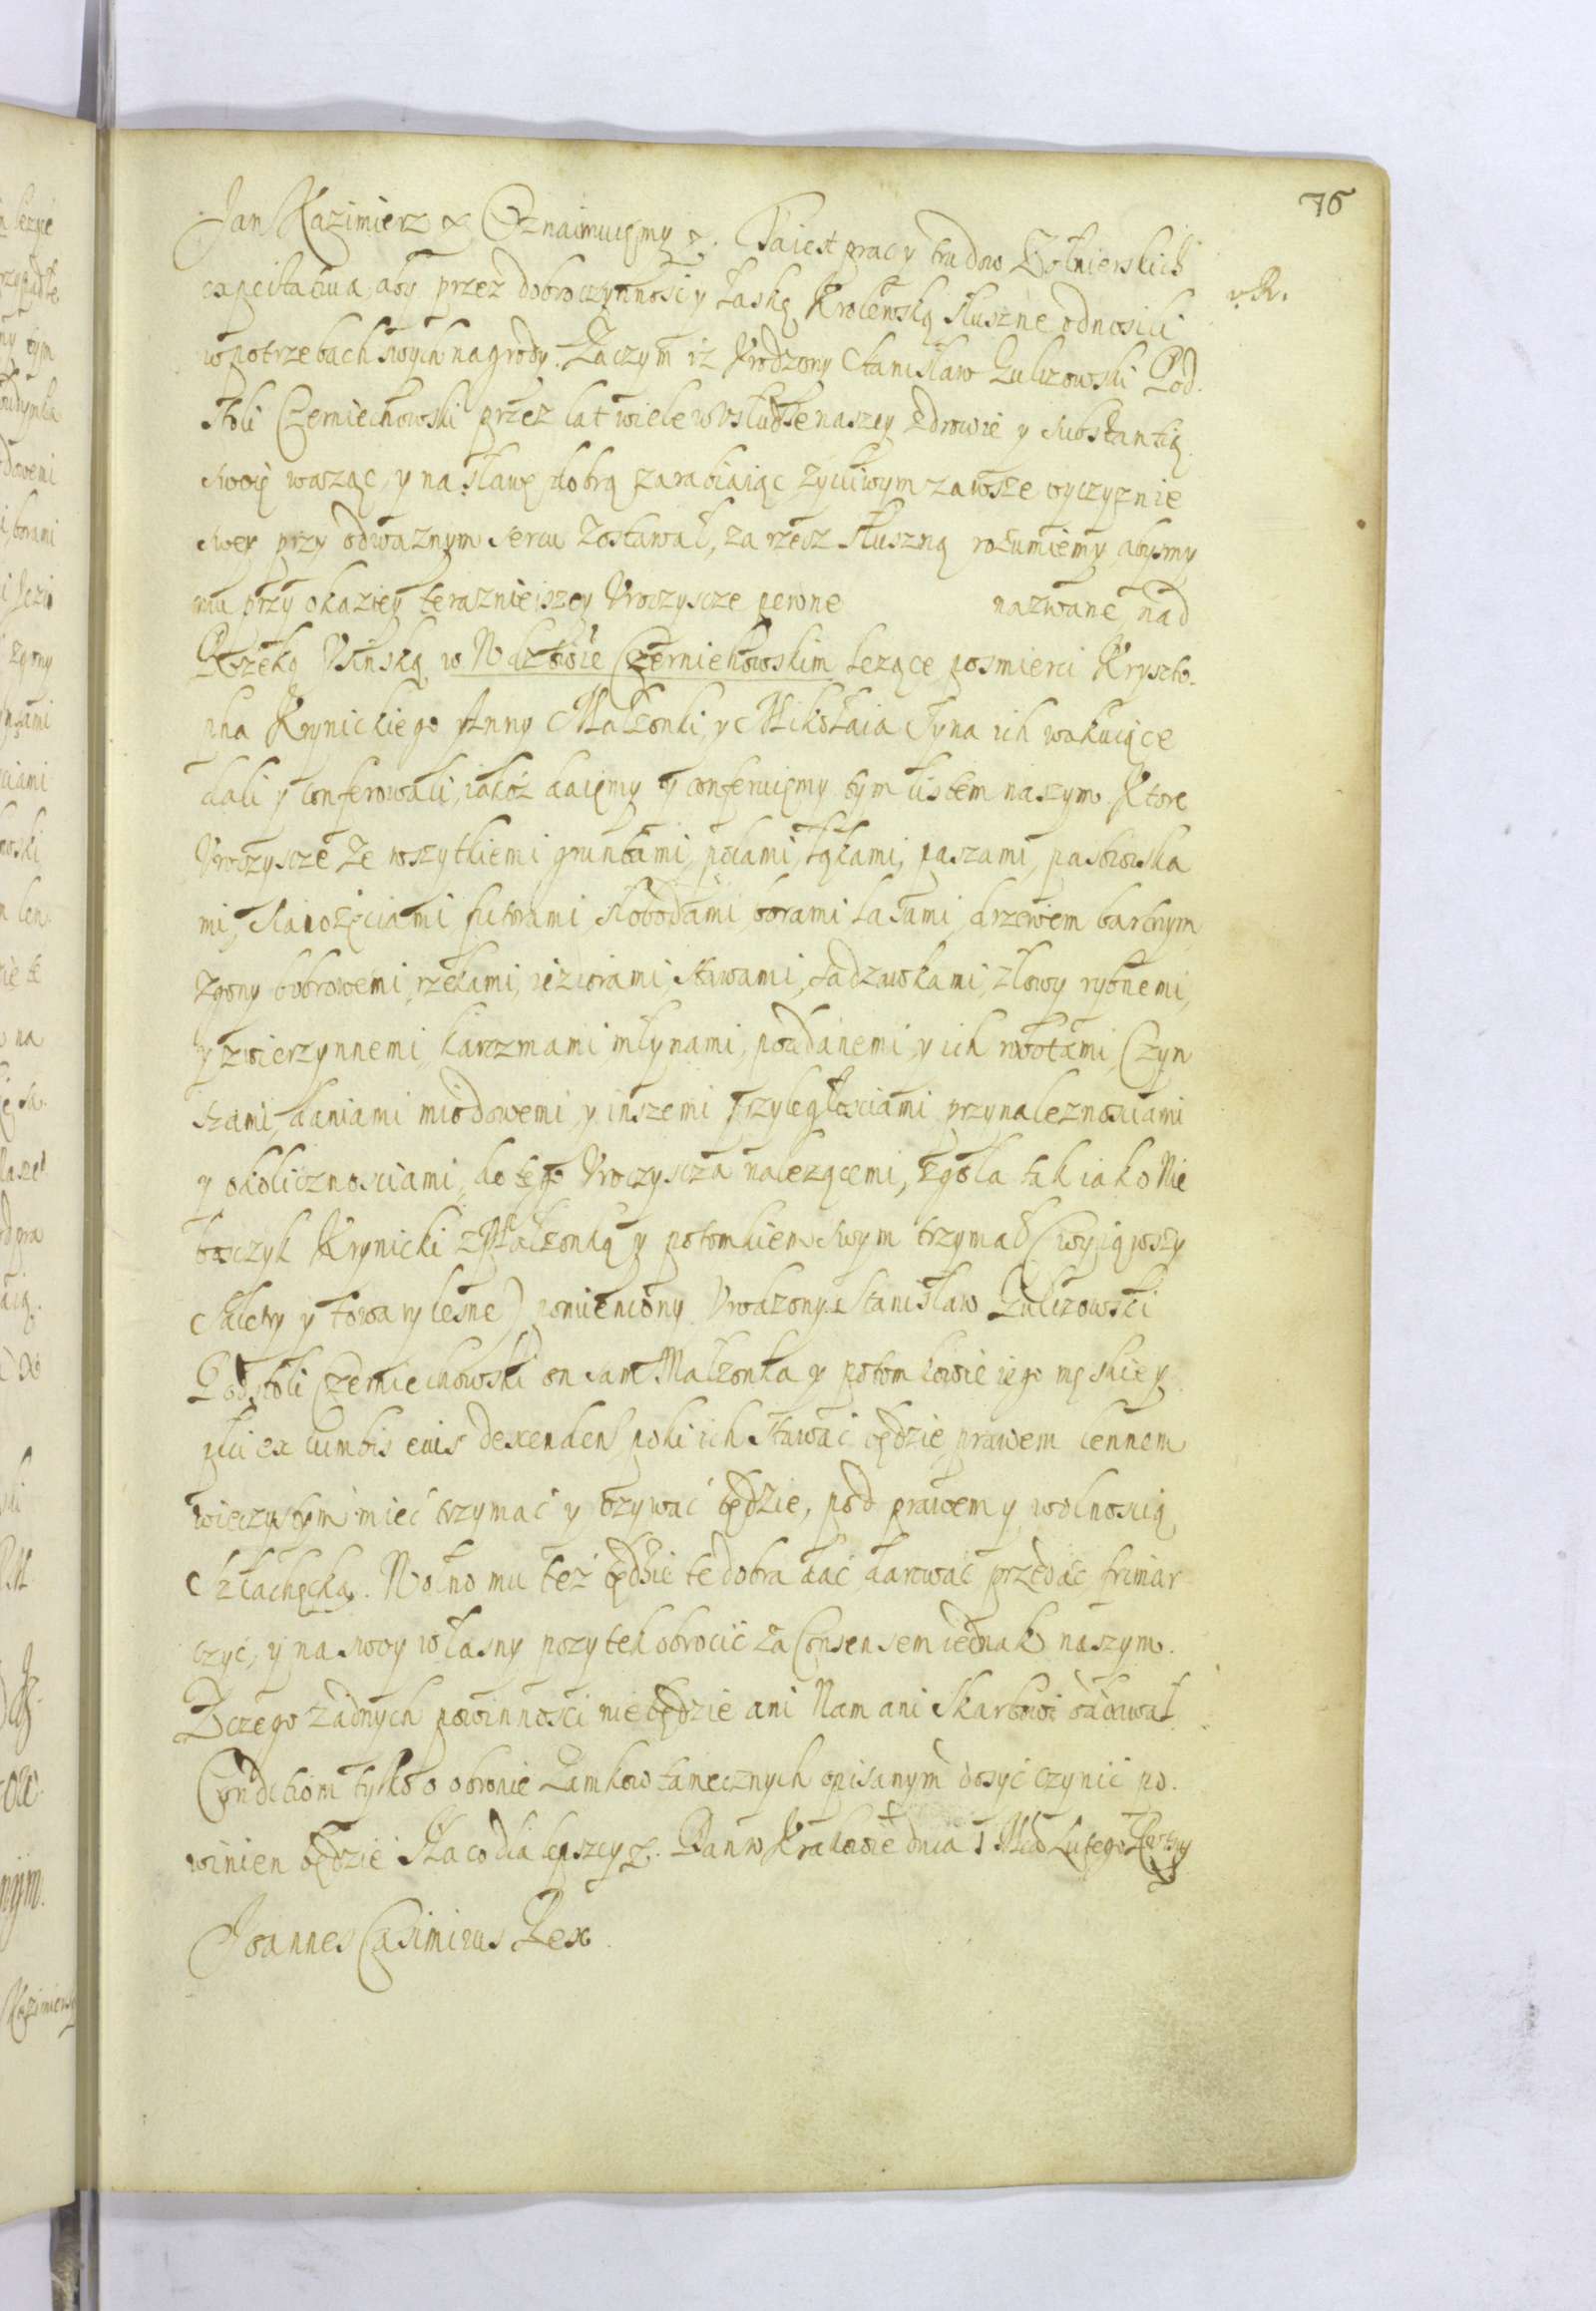 76
Jan Kazimierz &. Oznaimuięmy &. Ta iest pracy trudow Żołnierskich
v. R.
capcitatiua, aby przez dobroczynność y Łaskę Krolewską słuszne odnosili
w potrzebach swych nagrody. Zaczym iż Vrodzony Stanisław Zulizowski Pod-
stoli Czerniechowski przez lat wiele w Vsłudze naszey zdrowie y substantią
swoię ważąc, y na sławę dobrą zarabiaiąc życzliwym zawsze oyczyznie
swey przy odważnym sercu zostawał, za rzecz słuszną rozumiemy, abysmy
mu przy okaziey terazniejszey Vroczyscze pewne nazwane nad
Rzeką Vsinską w Wdztwie Czerniehowskim leżące po smierci Kryszto-
pha Krynickiego y Anny Małżonki, y Mikołaia Syna ich wakuiące
dali y conferowali, iakoż daięmy y conferuięmy tym listem naszym. Ktore
Vroczyscze ze wszytkiemi gruntami, polami, łąkami, paszami, pastwiska
mi, sianożęciami, futorami, słobodami borami lasami, drzewem bartnym
zgony bobrowemi, rzekami, ieziorami, stawami, sadzawkami, złowy rybnemi,
y zwierzynnemi, karczmami, młynami, poddanemi, y ich robotami, Czyn
szami, daniami miodowemi, y inszemi przyległosciami, przynaleznosciami
y okolicznosciami, do tego Vroczyscza nalezącemi, zgoła tak iako Nie
boszczyk Krynicki z Małżonką y potomkiem swym trzymał (wyiąwszy
Saletry y towary lesne) pomieniony Vrodzony Stanisław Zulizowski
Podstoli Czerniechowski on sam Malżonka y potomkowie iego męskiey
płci ex lumbis eius descenden, poki ich stawać będzie, prawem lennem
wieczystym mieć trzymać y vzywać będzie, pod prawem y wolnoscią
Szlachęcką. Wolno mu też będzie te dobra dać, darować, przedać frimar-
czyć, y na swoy własny pozytek obrocić za Consensem iednak naszym.
Z czego żadnych powinnosci nie będzie ani Nam ani Skarbowi oddawał
Conditiom tylko o obronie Zamkow tamecznych opisanym dosyć czynić po-
winien będzie. Na co dla lepszey &. Dan w Krakowie dnia 1 Mca Lutego
Joannes Casimirus Rex.